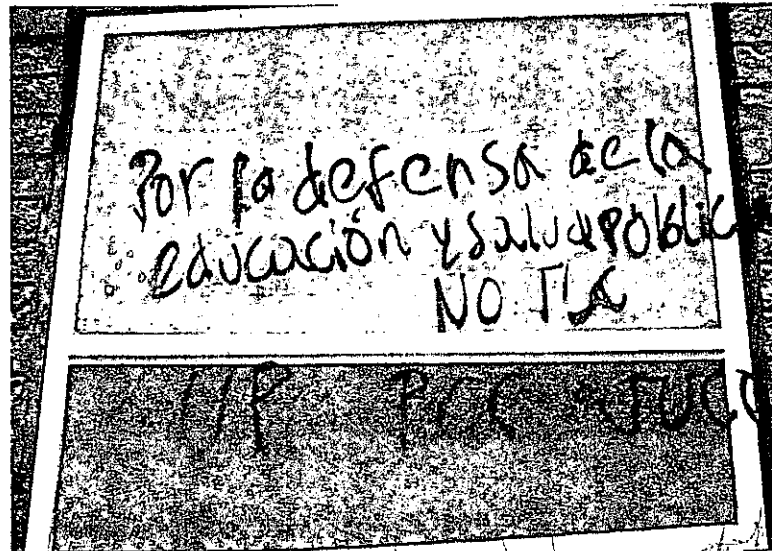 Por la defensa de la
educación y salud pública
NO TLC
UP PCC JUCO